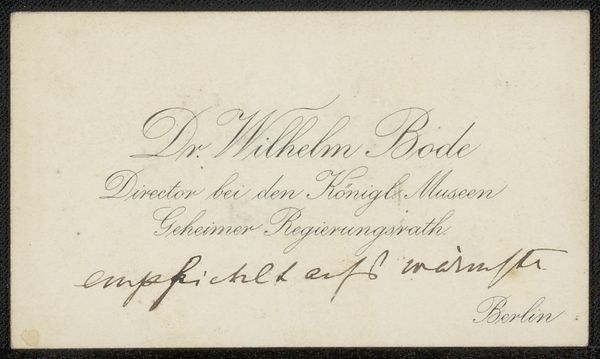 Dr. Wilhelm Bode
Director bei den Königl. Museen
Geheimer Regierungsrath
empfiehlt aufs wärmste
Berlin